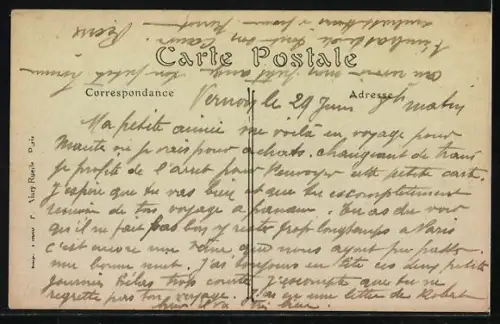 Carte Postale
Correspondance
Adresse
Vernon le 29 Juin matin
Ma petite aimée me voilà en voyage pour
Mantes où je vais pour achats. changeant de train
je profite de l'arrêt pour t'envoyer cette petite carte.
J'espère que tu vas bien et que tu es complètement
remise de ton voyage à Tu as du voir
qu'il ne fait pas bon y rester trop longtemps à Paris
c'est encore une que nous ayons pu passer
une bonne nuit. J'ai toujours en tête ces deux petites
journées hélas trop courtes J'escompte que tu ne
regrette pas ton voyage. J'ai eu une lettre de Robert
hier il va très bien.
Au revoir mon petit ange ton petit homme
Pierre